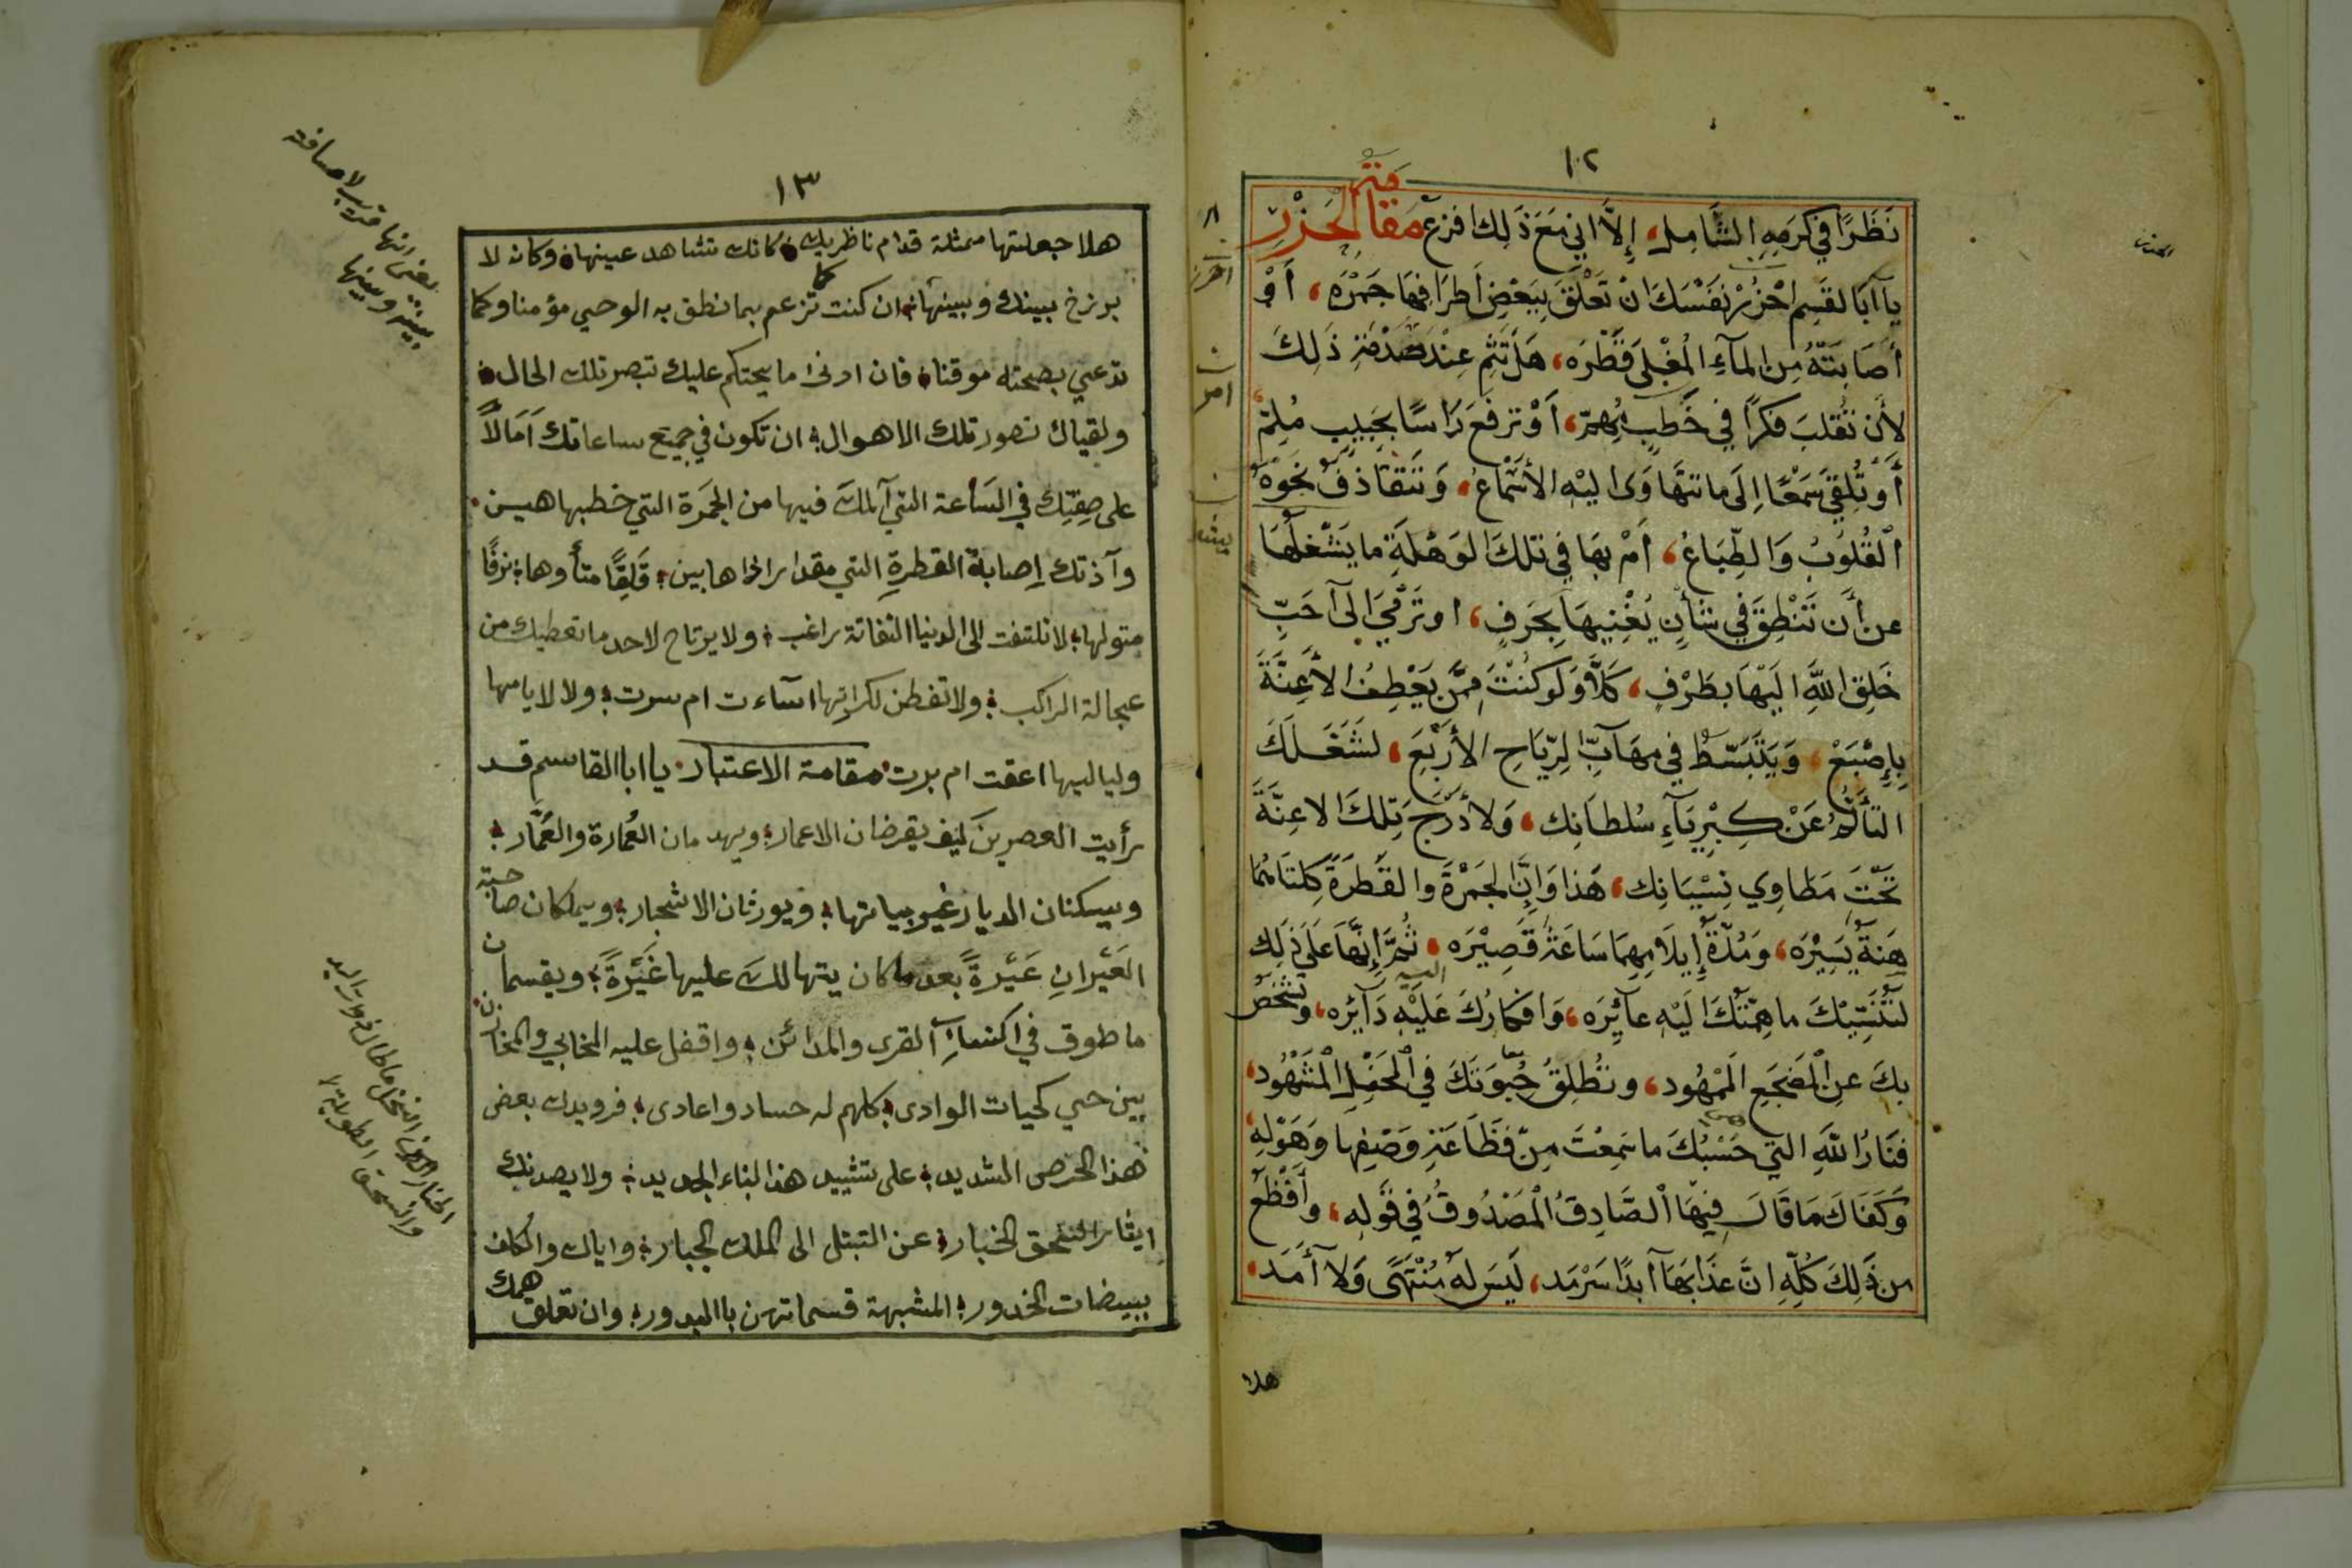 ١٢
نَظَرًا في كَرَمِهِ الشَّامِلِ، إِلَّا اني مَعَ ذَلِكَ فزع مَقَامَةُ الحَذْرِ
يا آبَا لقَسِم احْزُرْ نَفْسَكَ انْ تَعْلَقَ بِبَعْضِ أَطرَافِهَا جَمْرَه، أَوْ
أَصَابَتْهُ مِنَ الْمآءِ الْمُغْلَى قَطْرَه، هَلْ تَتِمُ عِنْدَ صَدْمَةِ ذَلِكَ
لأَن تُقَلِبَ فِكْرًا في خَطبٍ مُهِمّ، أَوْ ترفَعَ رَاسًا بحَبِيبٍ مُلِمّ
أَوْ تُلِقيَ سَمْعًا إِلَى ما تَتَهَاوَى اليْهِ الأَسْمَاعُ، وَتَتَقَاذَفُ نَحْوَهُ
ٱلقُلُوبُ وَالطِّبَاعُ، أَمْ بهَا في تلكَ الوَهْلَةِ ما يَشْغَلُهَا
عن أَن تَنْطِقَ في شأنٍ يُغْنِيهَا بحَرفٍ، او تَرْمِيَ الَى آحَبِّ
خَلِقِ اللَّهِ اليَهْا بطَرْفٍ، كَلَّا وَلَو كنْتَ مِمَّن يَعْطِفُ الأَعِنَّةَ
بِإِصْبَعْ، وَيَتَبَسَّطُ في مهَآبِّ الرِّيَاحِ الأَرْبَعَ، لشَغَلَكَ
التأَلُّمُ عَنْ كِبْرِيَآءِ سُلطَانِك، وَلأَدْرَجَ تِلكَ الاعِنَّةَ
تَحْتَ مَطَاوِي نِسْيَانِك، هَذا وَإِنَّ الجَمْرَةَ والقَطرَةَ كِلتَاهُمَا
هَنَةٌ يَسِيْرَه، وَمُدّةُ إِيلَامِهِمَا سَاعَةٌ قَصِيْرَه، ثُمَّ إِنَّهَا عَلَى ذَلِك
لتُنَسِّيْكَ ما هِمَّتُكَ اليَهِ عآئِرَه، وَافكَارُكَ عَليْهِ دَآئِرَه، وتُشْخِصُ
بكَ عنِ الْمَضْجَعِ الَمْهُود، وتُطلِقُ حُبوَتَكَ في ٱلْمَحْفِلِ الْمَشْهُود،
فنَارُ اللَّهِ التي حَسْبُكَ ما سَمِعْتَ مِنْ فَظَاعَةِ وَصْفِهَا وَهَوْلِهِ
وَكَفَاكَ مَا قَالَ فِيهَا ٱلصَّادِقُ الْمَصْدُوقُ في قَولِهِ، وَأَفْظَعُ
من ذَلِكَ كُلِّهِ انَّ عذَابَهَا آبدًا سَرْمَد، لَيسَ لهُ مُنْتَهًى وَلَا أَمَد
هلا
١٣
هلا جعلتها ممثلة قدام ناظريك كانك تشاهد عينها وكانه لا
برزخ بينك وبينها ان كنت تزعم بما نطق به الوحي مؤمنا وكما
تدعي بصحته موقنا فان ادنى ما يحتكم عليك تبصر تلك الحال
ولقياك تصور تلك الاهوال ان تكون في جميع ساعاتك اَمَالًا
على صِفتِك في السَاعة التي آلمك فيها من الجمَرة التي خطبها هين
وآذتك إصابة القطرةِ التي مقدار اذاها بين قَلِقًا متأوها نزقًا
متولها لا تلتفت الى الدنيا التفاتة راغب ولا يرتاح لاحد ما تعطيك من
عجالة الراكب ولا تفطن لكراتها اسآءت ام سرت ولا لايامها
ولياليها اعقت ام برت مقامة الاعتبار يا ابا القاسم قد
رأيت العصرين كيف يقرضان الاعمار ويهدمان العُمارة والعُمَّار
ويسكنان الديار غير بياتها ويورثان الاشجار ويملكان صاحبة
الغَيْرانِ غَيْرةً بعد ما كان يتهالك عليها غَيْرةً ويقسمان
ما طوف في اكتسابِ القرى والمدائن واقفل عليه المخابي والمخازن
بين حي كحيات الوادى كلهم له حساد واعادى فرويدك بعض
هذا الحرص الشديد على تشييد هذا البناء الجديد ولا يصدنك
ايثار السحق الجبار عن التبتل الى الملك الجبار واياك والكلف
ببيضات الخدور المشبهة قسماتهن باالبدور وان تعلق همك